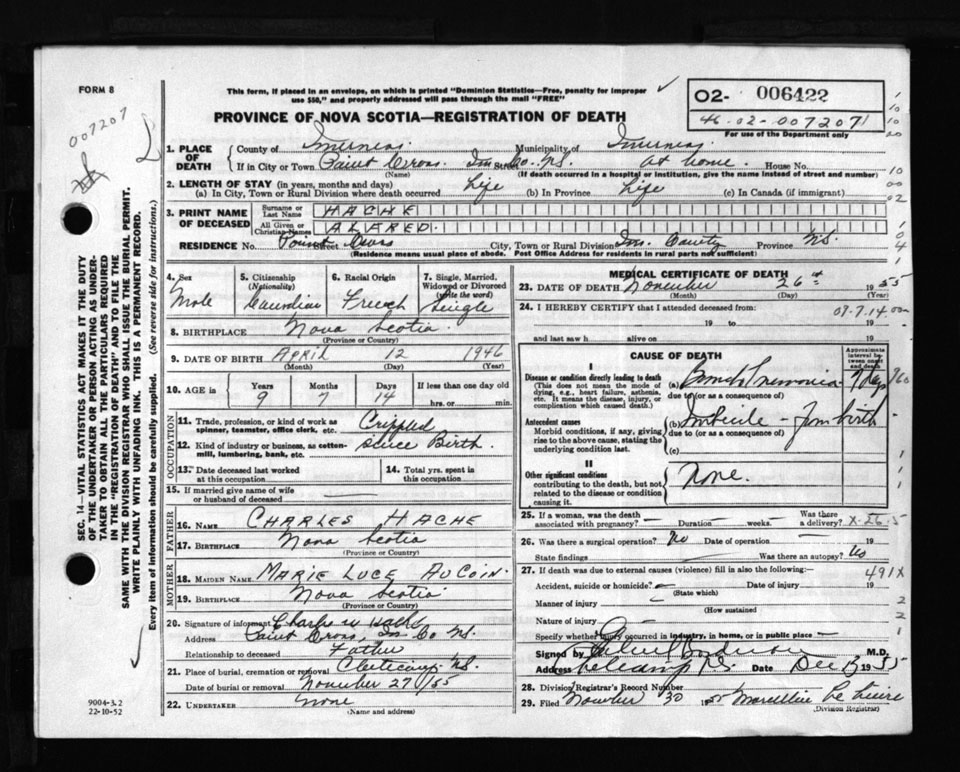 FORM 8
This form, if placed in an envelope, on which is printed "Dominion Statistics—Free, penalty for improper
use $50," and properly addressed will pass through the mail "FREE"
PROVINCE OF NOVA SCOTIA—REGISTRATION OF DEATH
02- 006422
46-02-007207
For use of the Department only
007207
SEC. 14—VITAL STATISTICS ACT MAKES IT THE DUTY
OF THE UNDERTAKER OR PERSON ACTING AS UNDER-
TAKER TO OBTAIN ALL THE PARTICULARS REQUIRED
IN THE "REGISTRATION OF DEATH" AND TO FILE THE
SAME WITH THE DIVISION REGISTRAR WHO SHALL ISSUE THE BURIAL PERMIT.
WRITE PLAINLY WITH UNFADING INK. THIS IS A PERMANENT RECORD.
Every item of information should be carefully supplied. (See reverse side for instructions.)
1. PLACE OF DEATH
County of Inverness Municipality of Inverness
If in City or Town Point Cross Street Co. N.S. at home. House No.
(Name) (If death occurred in a hospital or institution, give the name instead of street and number)
2. LENGTH OF STAY (in years, months and days)
(a) In City, Town or Rural Division where death occurred Life (b) In Province Life (c) In Canada (if immigrant)
3. PRINT NAME OF DECEASED
Surname or Last Name HACHE
All Given or Christian Names ALFRED.
RESIDENCE No. Point Street Cross City, Town or Rural Division Inv. County Province N.S.
(Residence means usual place of abode. Post Office Address for residents in rural parts not sufficient)
4. Sex 5. Citizenship (Nationality) 6. Racial Origin 7. Single, Married, Widowed or Divorced (write the word)
Male Canadian French Single
8. BIRTHPLACE Nova Scotia
(Province or Country)
9. DATE OF BIRTH April 12 1946
(Month) (Day) (Year)
10. AGE in Years Months Days If less than one day old
9 7 14 hrs. or min.
OCCUPATION
11. Trade, profession, or kind of work as spinner, teamster, office clerk, etc. Crippled
12. Kind of industry or business, as cotten-mill, lumbering, bank, etc. since Birth.
13. Date deceased last worked at this occupation
14. Total yrs. spent in this occupation
15. If married give name of wife or husband of deceased —
FATHER
16. NAME CHARLES HACHE
17. BIRTHPLACE Nova Scotia
(Province or Country)
MOTHER
18. MAIDEN NAME MARIE LUCE AUCOIN.
19. BIRTHPLACE Nova Scotia
(Province or Country)
20. Signature of informant Charlie W Hache
Address Point Cross, Inv. Co N.S.
Relationship to deceased Father
21. Place of burial, cremation or removal Cheticamp N.S.
Date of burial or removal November 27/55
22. UNDERTAKER None
(Name and address)
9004-3.2
22-10-52
MEDICAL CERTIFICATE OF DEATH
23. DATE OF DEATH November 26th 1955
(Month) (Day) (Year)
24. I HEREBY CERTIFY that I attended deceased from: 09.7.14
19 to 19
and last saw h alive on 19
CAUSE OF DEATH
Approximate interval between onset and death
I
Disease or condition directly leading to death
(This does not mean the mode of dying, e.g., heart failure, asthenia, etc. It means the disease, injury, or complication which caused death.)
(a) Broncho Pneumonia 7 days
due to (or as a consequence of)
Antecedent causes
Morbid conditions, if any, giving rise to the above cause, stating the underlying condition last.
(b) Imbecile - from birth
due to (or as a consequence of)
(c)
II
Other significant conditions
contributing to the death, but not related to the disease or condition causing it.
None.
25. If a woman, was the death associated with pregnancy? — Duration weeks. — Was there a delivery? X-26-5
26. Was there a surgical operation? No Date of operation — 19
State findings — Was there an autopsy? No
27. If death was due to external causes (violence) fill in also the following:— 491X
Accident, suicide or homicide? — Date of injury 19
(State which)
Manner of injury —
(How sustained)
Nature of injury —
Specify whether injury occurred in industry, in home, or in public place —
Signed by M.D.
Address Cheticamp N.S. Date Dec 13 1955
28. Division Registrar's Record Number
29. Filed November 30 1955 Marcellin
(Division Registrar)